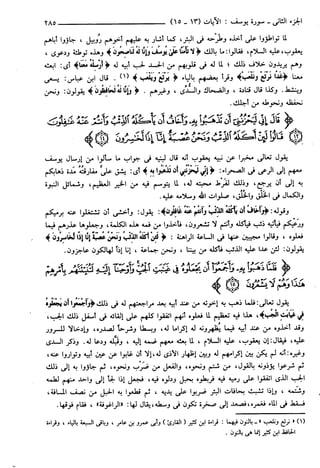 الجزء الثاني - سورة يوسف : الآيات (١٣ - ١٥) ٢٨٥
لما تواطؤوا على أخذه وطرحه في البئر، كما أشار به عليهم أخوهم رُوبيل، جاؤوا أباهم
يعقوب، عليه السلام، فقالوا: ما بالك ﴿لَا تَأْمَنَّا عَلَىٰ يُوسُفَ وَإِنَّا لَهُ لَنَاصِحُونَ﴾ وهذه توطئة ودعوى،
وهم يريدون خلاف ذلك؛ لما له في قلوبهم من الحسد لحب أبيه له ﴿أَرْسِلْهُ مَعَنَا﴾ أي: ابعثه
معنا ﴿غَدًا نَرْتَعْ وَنَلْعَبْ﴾ وقرأ بعضهم بالياء ﴿يَرْتَعْ وَيَلْعَبْ﴾ (١). قال ابن عباس: يسعى
وينشط. وكذا قال قتادة، والضحاك والسُّدي، وغيرهم. ﴿وَإِنَّا لَهُ لَحَافِظُونَ﴾ يقولون: ونحن
نحفظه ونحوطه من أجلك.
﴿قَالَ إِنِّي لَيَحْزُنُنِي أَنْ تَذْهَبُوا بِهِ وَأَخَافُ أَنْ يَأْكُلَهُ الذِّئْبُ وَأَنْتُمْ عَنْهُ غَافِلُونَ
﴿١٣﴾ قَالُوا لَئِنْ أَكَلَهُ الذِّئْبُ وَنَحْنُ عُصْبَةٌ إِنَّا إِذًا لَخَاسِرُونَ ﴿١٤﴾﴾
يقول تعالى مخبرا عن نبيه يعقوب أنه قال لبنيه في جواب ما سألوا من إرسال يوسف
معهم إلى الرعي في الصحراء: ﴿إِنِّي لَيَحْزُنُنِي أَنْ تَذْهَبُوا بِهِ﴾ أي: يشق عليَّ مفارقتُه مدة ذهابكم
به إلى أن يرجع، وذلك لفَرْط محبته له، لما يتوسم فيه من الخير العظيم، وشمائل النبوة
والكمال في الخُلُق والخَلْق، صلوات الله وسلامه عليه.
وقوله: ﴿وَأَخَافُ أَنْ يَأْكُلَهُ الذِّئْبُ وَأَنْتُمْ عَنْهُ غَافِلُونَ﴾: يقول: وأخشى أن تشتغلوا عنه برميكم
ورعيكم فيأتيه ذئب فيأكله وأنتم لا تشعرون، فأخذوا من فمه هذه الكلمة، وجعلوها عذرهم فيما
فعلوه، وقالوا مجيبين عنها في الساعة الراهنة: ﴿لَئِنْ أَكَلَهُ الذِّئْبُ وَنَحْنُ عُصْبَةٌ إِنَّا إِذًا لَخَاسِرُونَ﴾
يقولون: لئن عدا عليه الذئب فأكله من بيننا، ونحن جماعة، إنا إذاً لهالكون عاجزون.
﴿فَلَمَّا ذَهَبُوا بِهِ وَأَجْمَعُوا أَنْ يَجْعَلُوهُ فِي غَيَابَتِ الْجُبِّ وَأَوْحَيْنَا إِلَيْهِ لَتُنَبِّئَنَّهُمْ بِأَمْرِهِمْ
هَٰذَا وَهُمْ لَا يَشْعُرُونَ ﴿١٥﴾﴾
يقول تعالى: فلما ذهب به إخوته من عند أبيه بعد مراجعتهم له في ذلك ﴿وَأَجْمَعُوا أَنْ يَجْعَلُوهُ
فِي غَيَابَتِ الْجُبِّ﴾، هذا فيه تعظيم لما فعلوه أنهم اتفقوا كلهم على إلقائه في أسفل ذلك الجب،
وقد أخذوه من عند أبيه فيما يُظهرونه له إكراما له، وبسطا وشرحاً لصدره، وإدخالا للسرور
عليه، فيقال: إن يعقوب، عليه السلام، لما بعثه معهم ضمه إليه، وقَبَّله ودعا له. وذكر السدي
وغيره: أنه لم يكن بين إكرامهم له وبين إظهار الأذى له، إلا أن غابوا عن عين أبيه وتواروا عنه،
ثم شرعوا يؤذونه بالقول، من شتم ونحوه، والفعل من ضَرْب ونحوه، ثم جاؤوا به إلى ذلك
الجب الذي اتفقوا على رميه فيه فربطوه بحبل ودلوه فيه، فجعل إذا لجأ إلى واحد منهم لطمه
وشَتَمه، وإذا تشبث بحافات البئر ضربوا على يديه، ثم قطعوا به الحبل من نصف المسافة،
فسقط في الماء فغمره، فصعد إلى صخرة تكون في وسطه، يقال لها: «الراغوفة»، فقام فوقها.